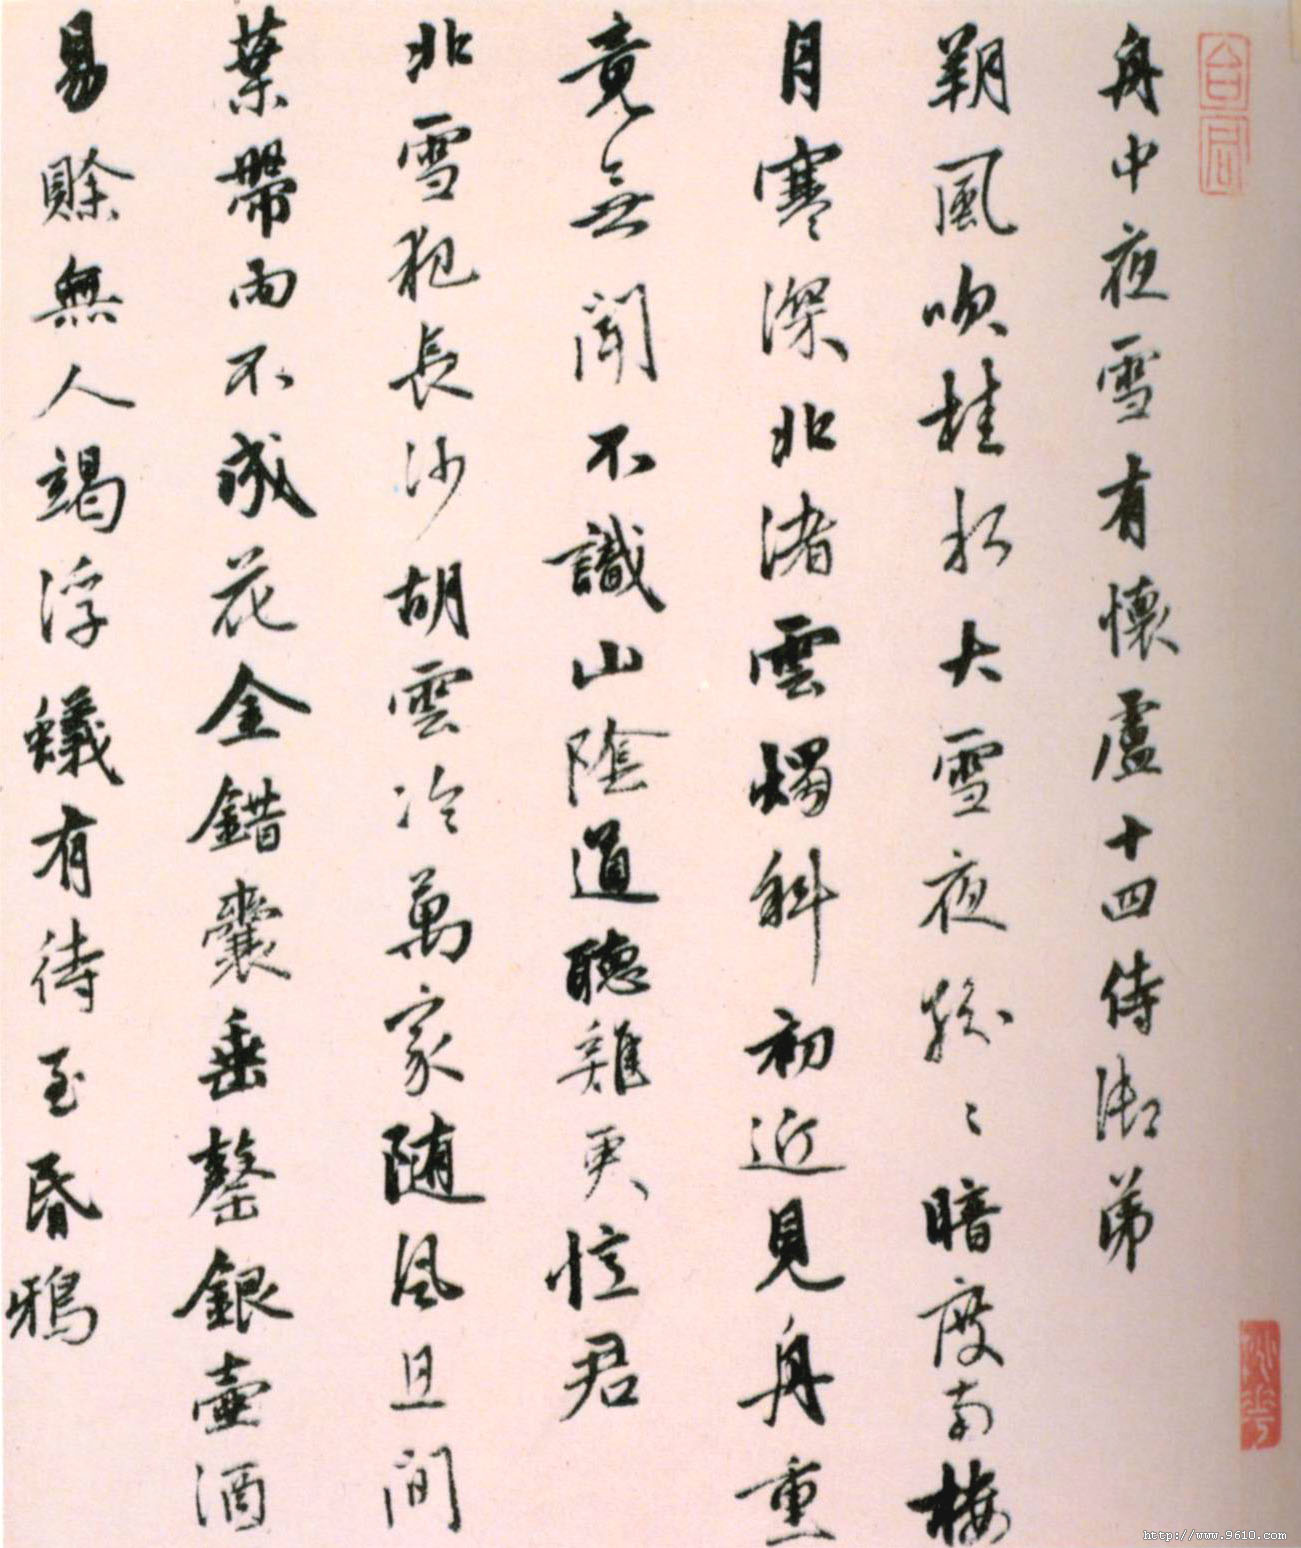 舟中夜雪有懷盧十四侍御弟
朔風吹桂水大雪夜紛〻暗度南樓
月寒深北渚雲燭斜初近見舟重
竟無聞不識山陰道聽雞更憶君
北雪犯長沙胡雲冷萬家隨風且間
葉帶雨不成花金錯囊垂罄銀壺酒
易賒無人竭浮蟻有待至昏鴉
http://www.9610.com